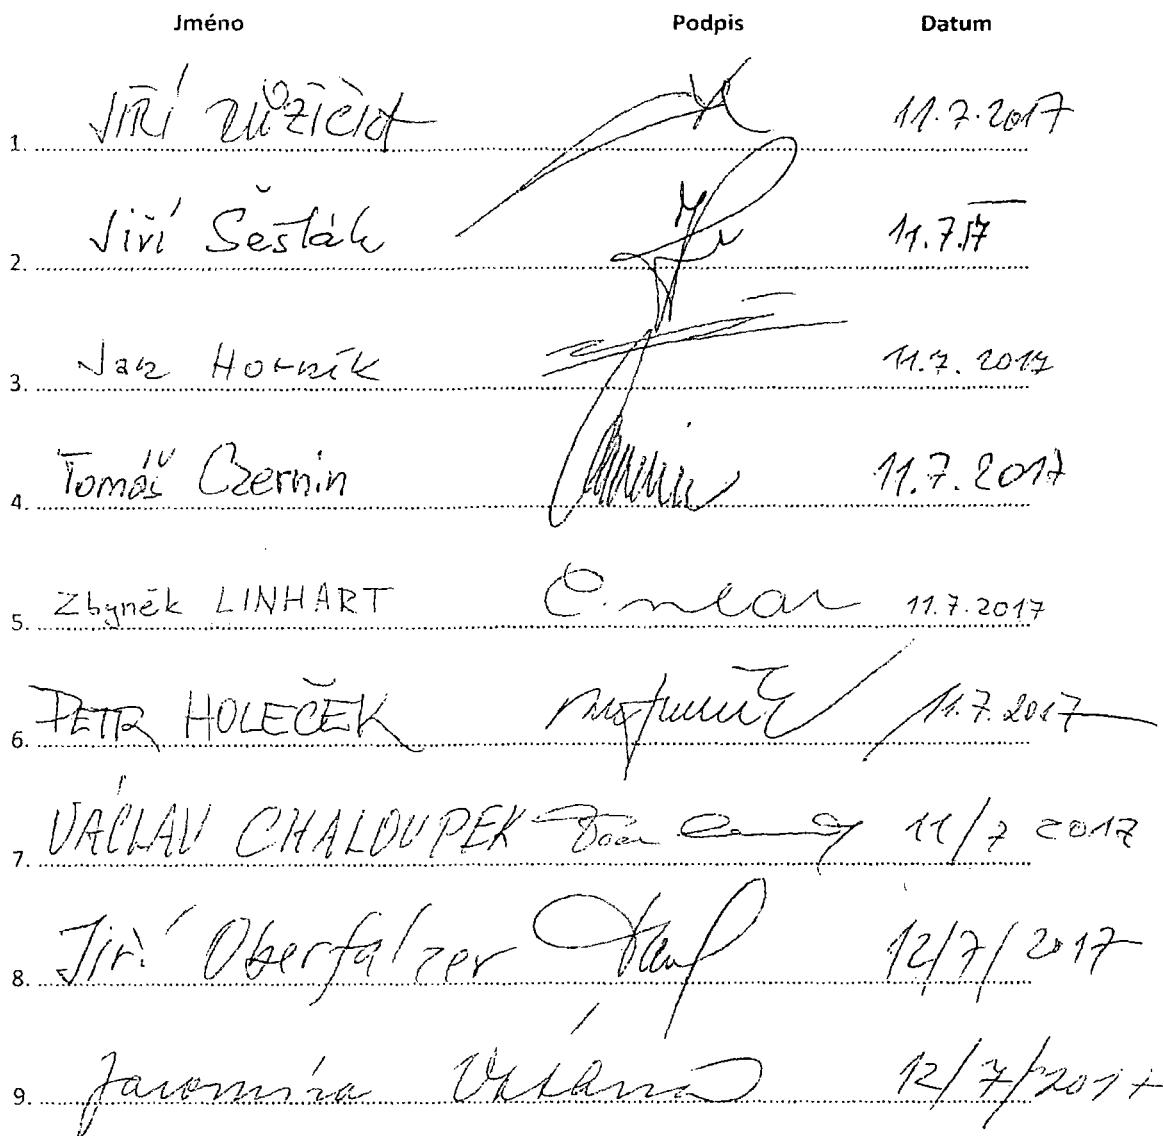 Jméno Podpis Datum
1. JIŘÍ RŮŽIČKA 11.7.2017
2. Jiří Šesták 11.7.17
3. Jan Horník 11.7.2017
4. Tomáš Czernin 11.7.2017
5. Zbyněk LINHART 11.7.2017
6. PETR HOLEČEK 11.7.2017
7. VÁCLAV CHALOUPEK 11/7 2017
8. Jiří Oberfalzer 12/7/2017
9. Jaromíra Vítková 12/7/2017